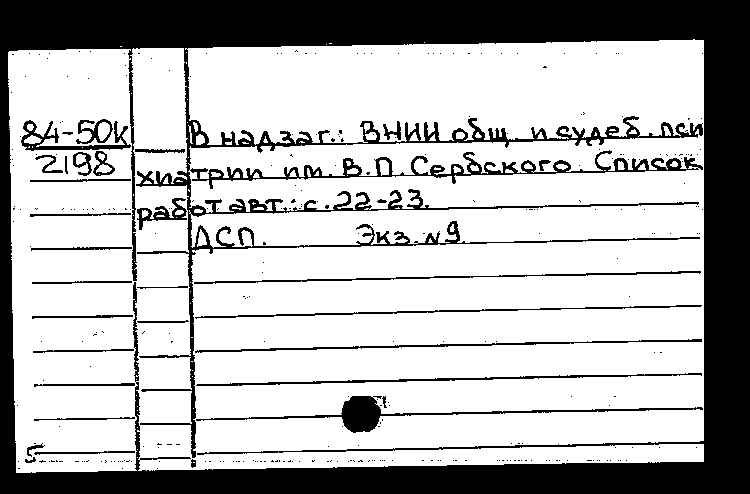 84-50к
2198
В надзаг.: ВНИИ общ. и судеб. пси
хиатрии им. В.П. Сербского. Список
работ авт.: с. 22-23.
ДСП. Экз. №9
5